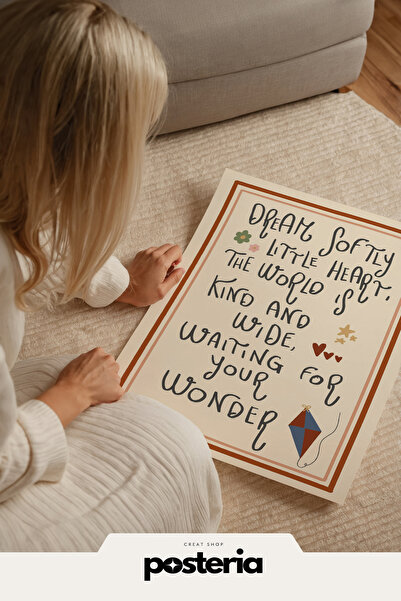 DREAM SOFTLY
LITTLE HEART,
THE WORLD IS
KIND AND
WIDE,
WAITING FOR
YOUR
WONDER
CREAT SHOP
posteria